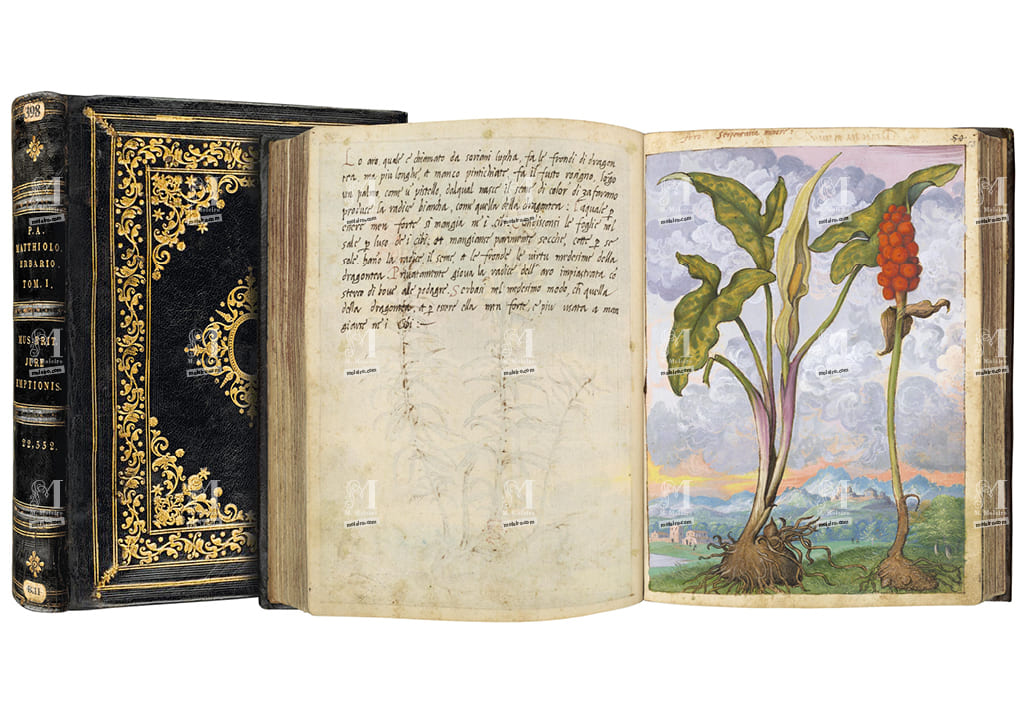 398
P.A.
MATTHIOLO.
ERBARIO.
TOM. I.
MUS. BRIT.
JURE
EMPTIONIS.
22,332.
Lo aro quale è chiamato da soriani lupha, fa le frondi di dragon
tea ma piu longhe, et manco pintichiate, fa il fusto rosigno, longo
un palmo, come u pistello, dalqual nasce il seme di color di zaforano
produce la radice biancha, come quella della dragontea: laquale p
essere men forte si mangia ne i cibi. Condisconsi le foglie nel
sale p luso de i cibi, et mangiansi parimente secche, cotte p se
sole. hano la radice, il seme, et le fronde le virtu medesime della
dragontea. Privatamente giova la radice dell aro impiastrata cō
sterco di bove alle podagre. Serbasi nel medesimo modo, ch quella
della dragontea, et p essere ella men forte, e piu usata a man
giare ne i cibi:
Aro. Serpentaria minore:
59.
M
M. Moleiro
moleiro.com